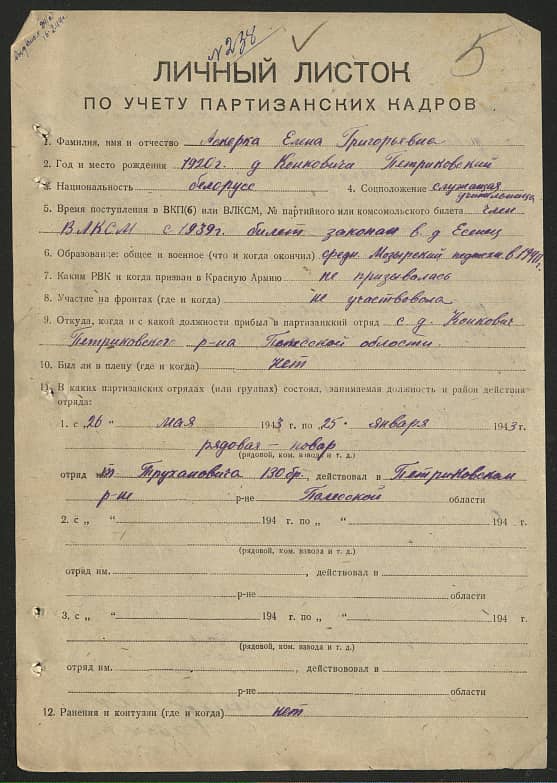 № 238
5
ЛИЧНЫЙ ЛИСТОК
ПО УЧЕТУ ПАРТИЗАНСКИХ КАДРОВ
1. Фамилия, имя и отчество Аскерка Елена Григорьевна
2. Год и место рождения 1920 г. д Конковичи Петриковский
3. Национальность белорусс 4. Соцположение служащая учительница
5. Время поступления в ВКП(б) или ВЛКСМ, № партийного или комсомольского билета член
ВЛКСМ с 1939г. билет закопан в д
6. Образование: общее и военное (что и когда окончил) средн. Мозырский в 1940 г.
7. Каким РВК и когда призван в Красную Армию не призывалась
8. Участие на фронтах (где и когда) не участвовала
9. Откуда, когда и с какой должности прибыл в партизанский отряд с д. Конкович
Петриковского р-на Полесской области.
10. Был ли в плену (где и когда) нет
11. В каких партизанских отрядах (или группах) состоял, занимаемая должность и район действия
отряда:
1. с 26 " мая 1943 г. по " 25 " января 1943 г.
рядовая – повар
(рядовой, ком. взвода и т. д.)
отряд им Трухановича 130 бр., действовал в Петриковском
р-не р-не Полесской области
2. с „ “ 194 г. по „ “ 194 г.
(рядовой, ком. взвода и т. д.)
отряд им. , действовал в
р-не области
3. с „ “ 194 г. по „ “ 194 г.
(рядовой, ком. взвода и т. д.)
отряд им. , действововал в
р-не области
12. Ранения и контузии (где и когда) нет